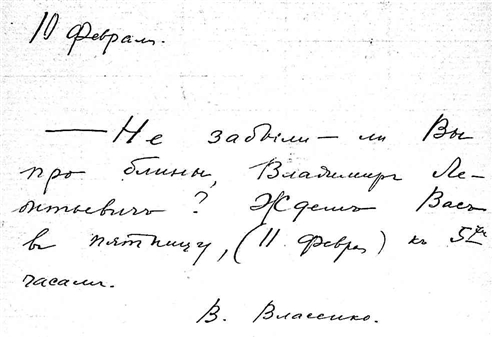 10 Февраля.
— Не забыли-ли Вы
про блины, Владимиръ Ле-
онтьевичъ? Ждемъ Васъ
въ пятницу, (11 Февра) къ 5ти
часамъ.
В. Власенко.